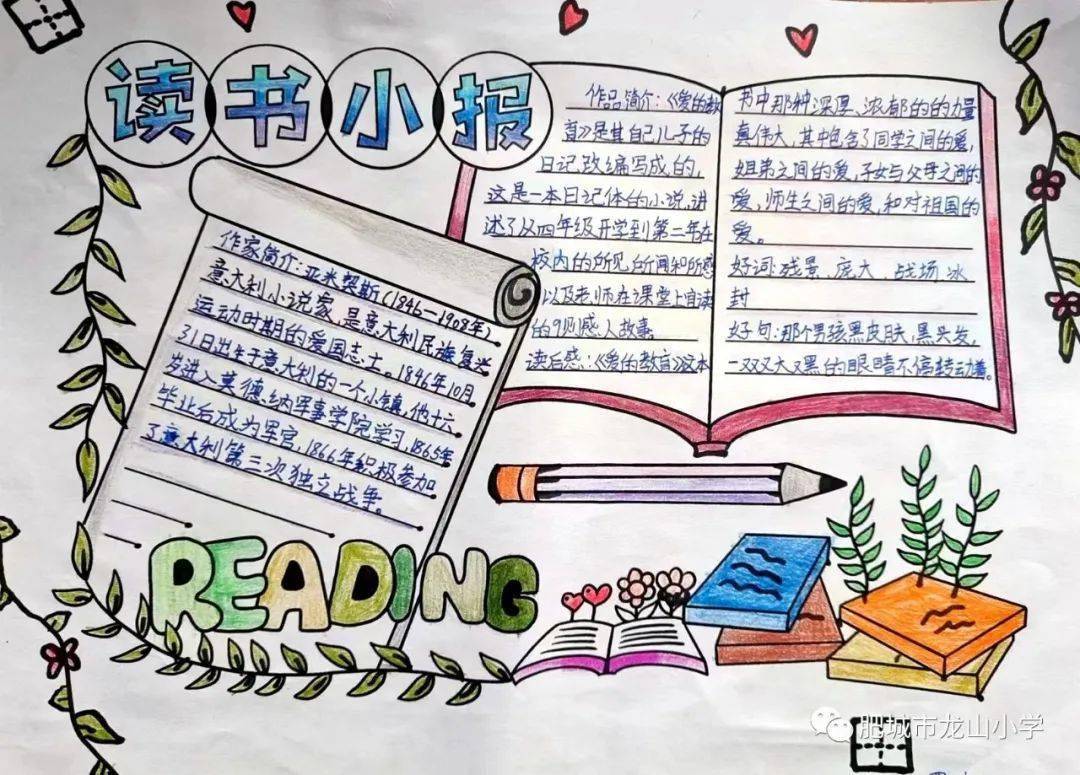 读书小报
作家简介:亚米契斯(1846—1908年)
意大利小说家,是意大利民族复兴
运动时期的爱国志士。1846年10月
31日出生于意大利的一个小镇,他十六
岁进入莫德纳军事学院学习,1865年
毕业后成为军官,1866年积极参加
了意大利第三次独立战争。
作品简介:《爱的教
育》是其自己儿子的
日记,改编写成的,
这是一本日记体的小说,讲
述了从四年级开学到第二年在
校内的所见所闻和所感
以及老师在课堂上宣读
的9则感人故事
读后感:《爱的教育》这本
书中那种深厚、浓郁的的力量
真伟大,其中包含了同学之间的爱,
姐弟之间的爱,子女与父母之间的
爱,师生之间的爱,和对祖国的
爱。
好词:残景、庞大、战场、冰
封
好句:那个男孩黑皮肤,黑头发,
一双双大又黑的眼睛不停转动着。
READING
肥城市龙山小学